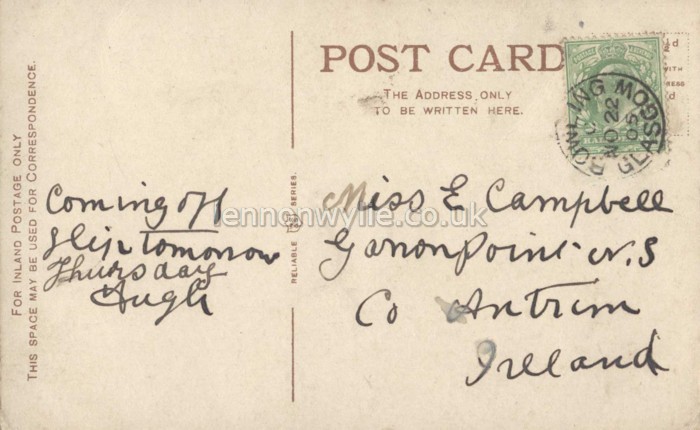 FOR INLAND POSTAGE ONLY
THIS SPACE MAY BE USED FOR CORRESPONDENCE.
POST CARD
THE ADDRESS ONLY
TO BE WRITTEN HERE.
GLASGOW
NO 22
05
Coming off
slip tomorrow
Thursday
Hugh
RELIABLE SERIES.
lennonwylie.co.uk
Miss E Campbell
Garronpoint N.S
Co Antrim
Ireland